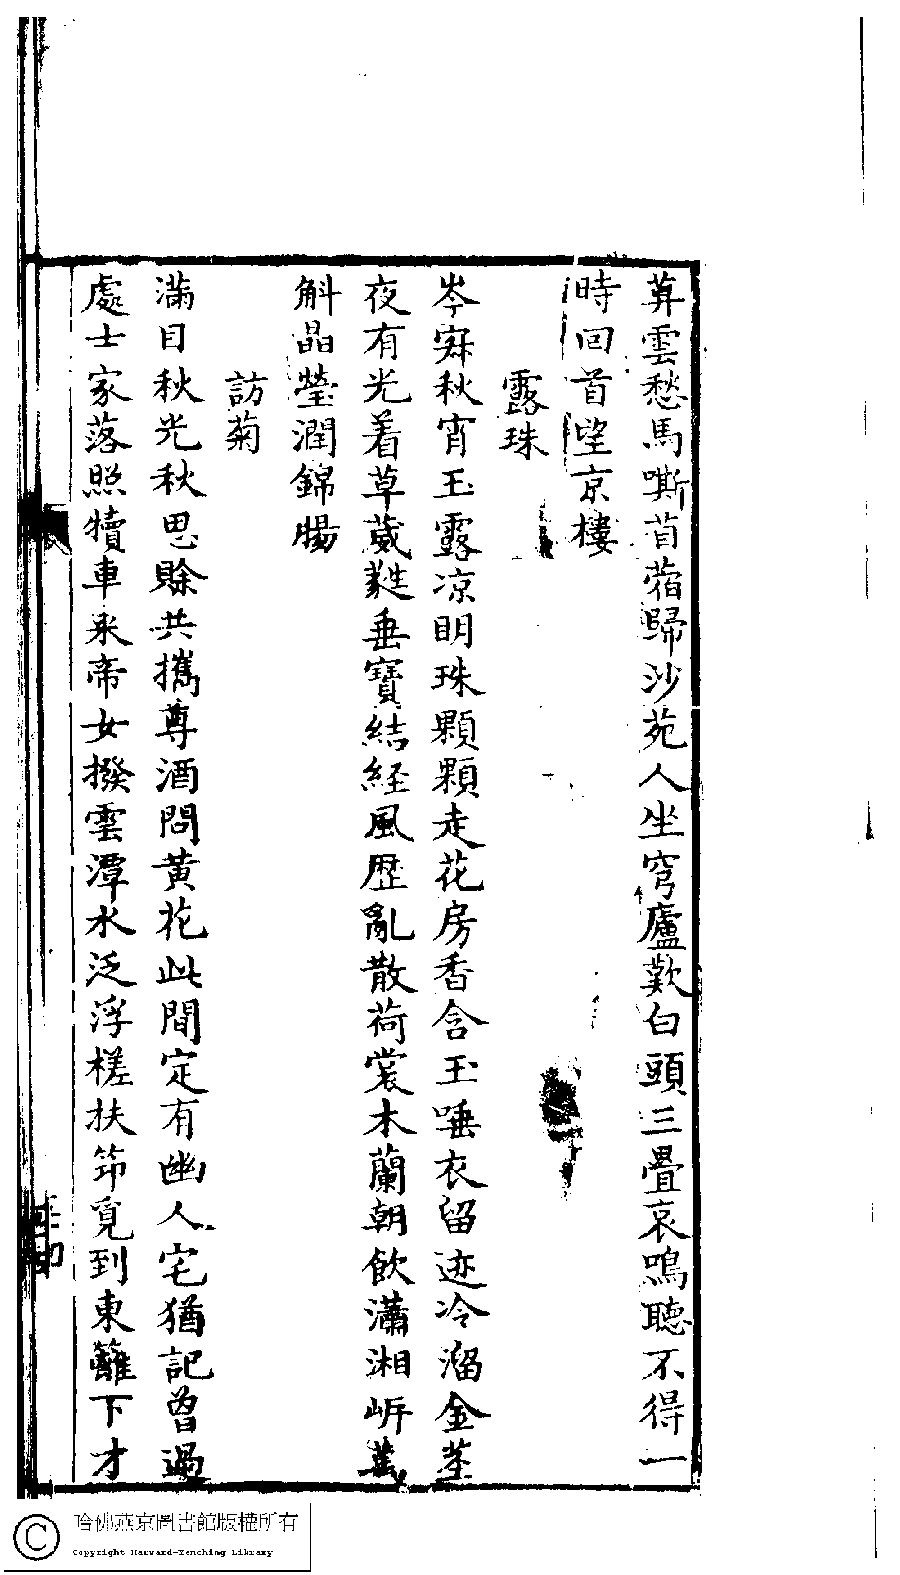 葬雲愁馬嘶苜蓿歸沙苑人坐穹廬歎白頭三疊哀鳴聽不得一
時回首望京樓
露珠
岑寂秋宵玉露凉明珠顆顆走花房香含玉唾衣留迹冷溜金莖
夜有光着草葳蕤垂寶結経風歴亂散荷裳木蘭朝飲瀟湘岸萬
斛晶瑩潤錦腸
訪菊
滿目秋光秋思賒共攜尊酒問黄花此間定有幽人宅猶記曾過
處士家落照犢車来帝女撥雲潭水泛浮槎扶笻覓到東籬下才
哈佛燕京圖書館版權所有
Copyright Harvard-Yenching Library